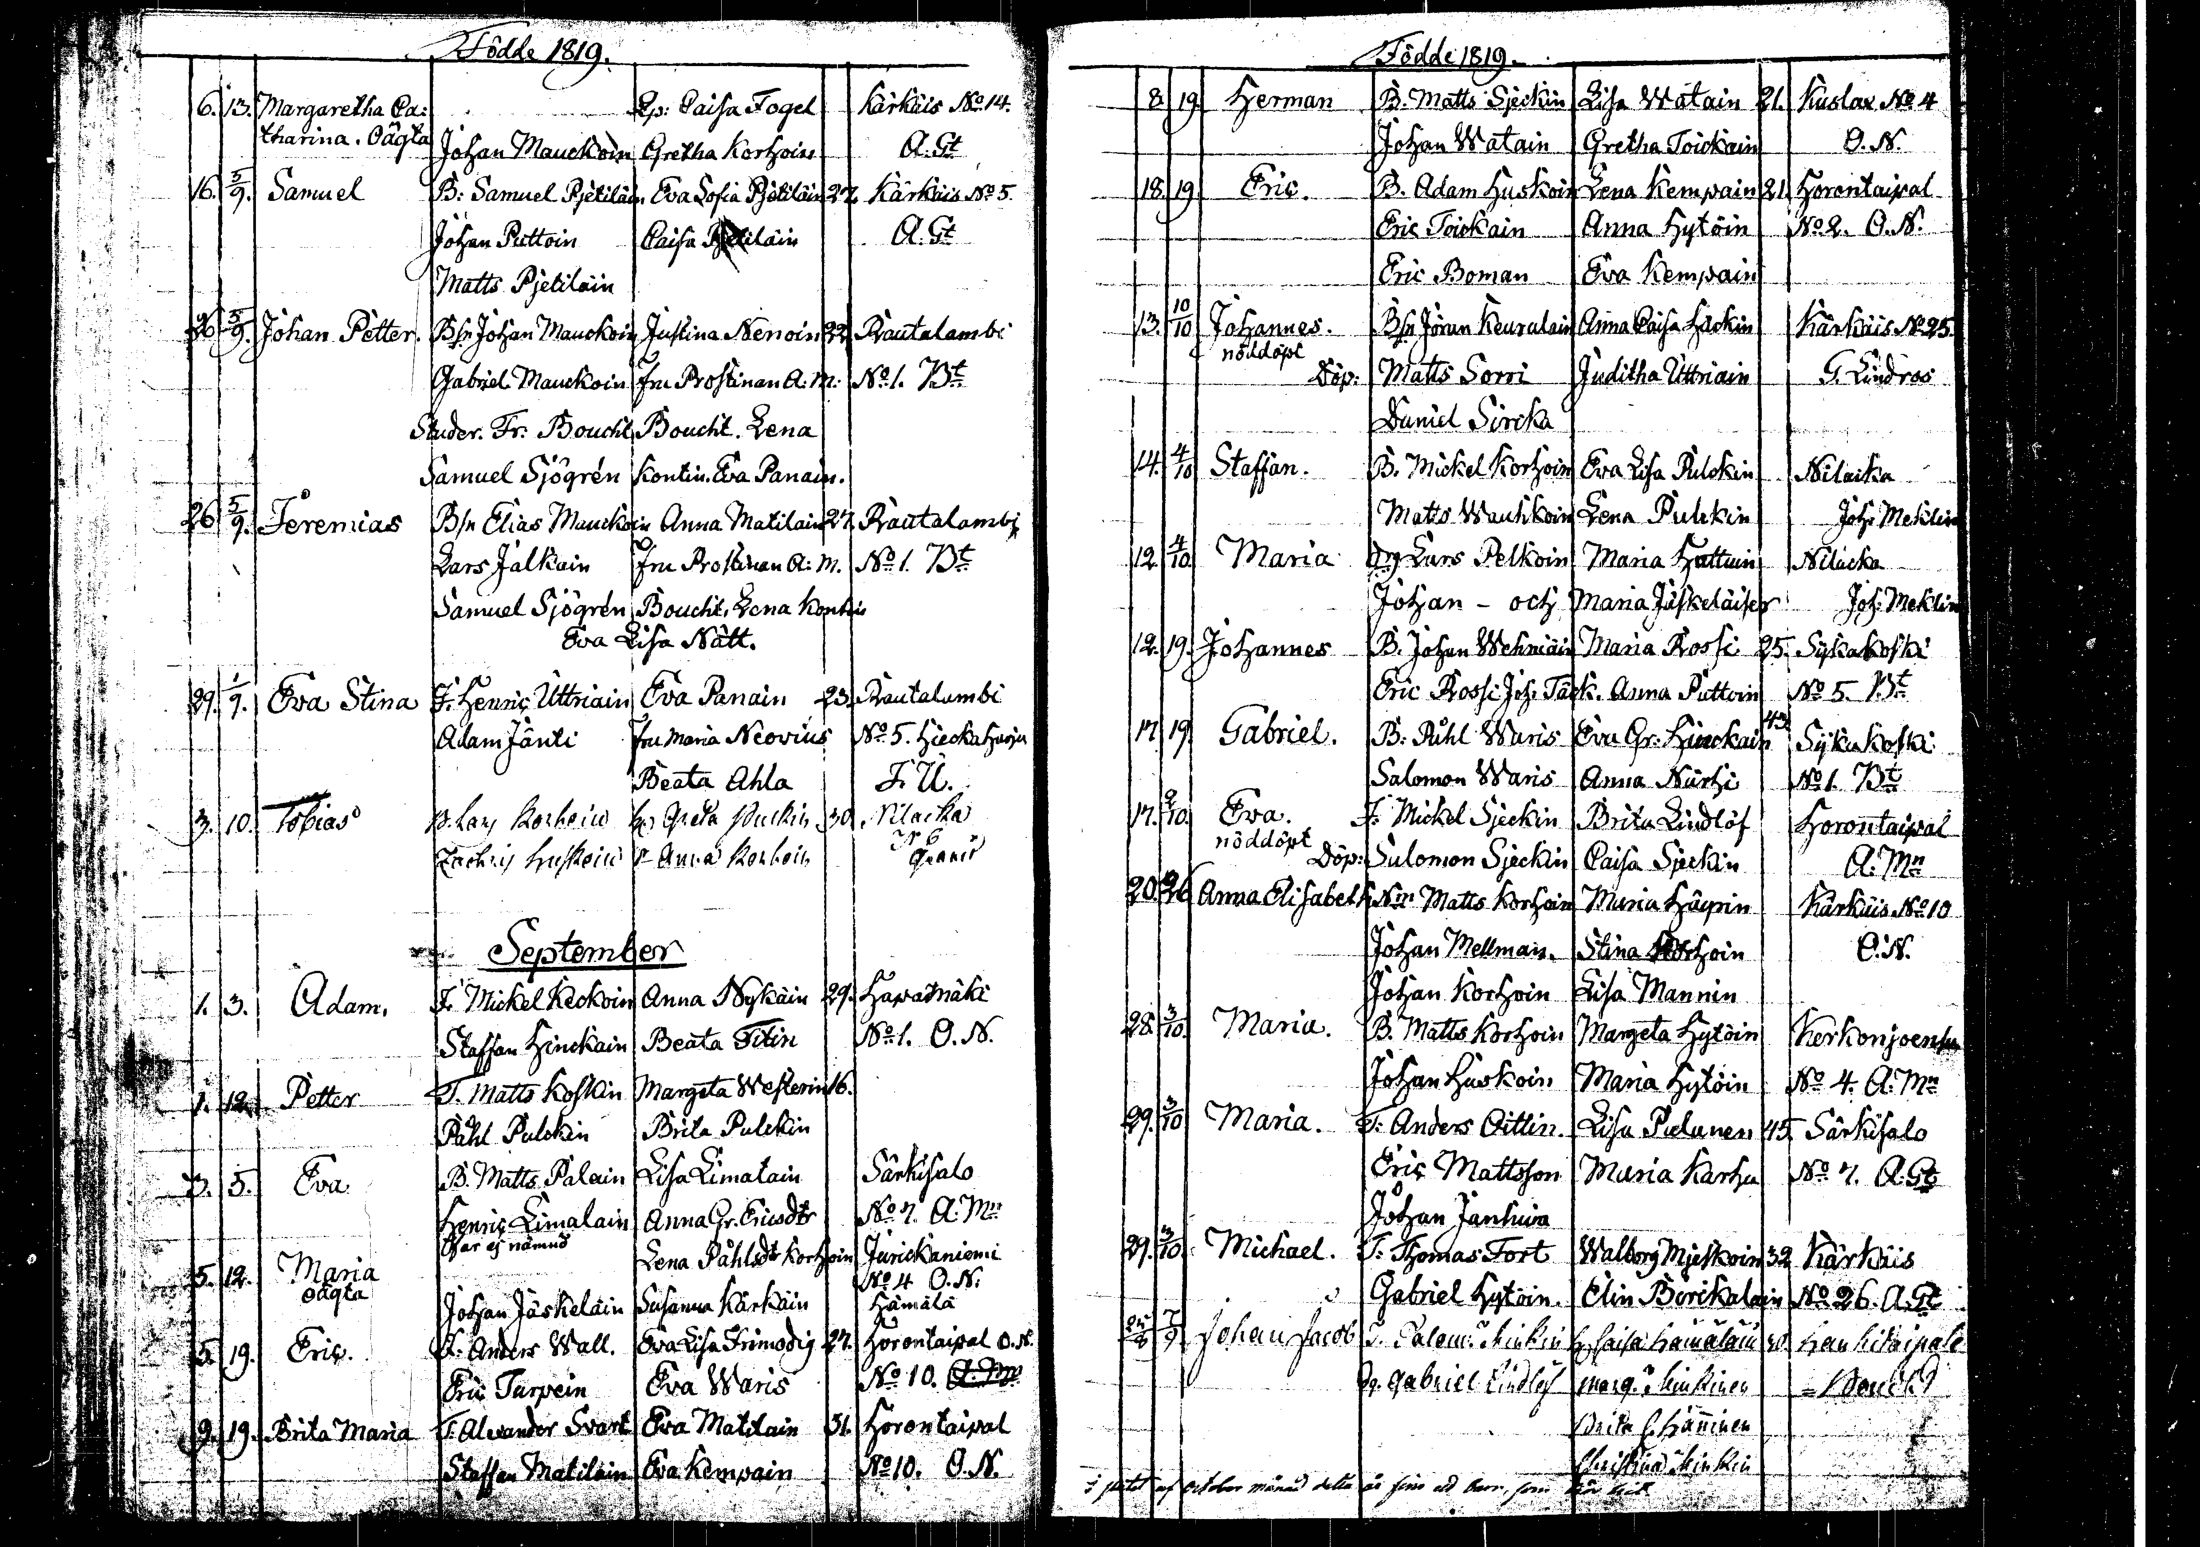 Födde 1819.
6. 13. Margaretha Ca: Ep: Caisa Fogel Kärkäis No 14.
tharina. Oägta Johan Mauckoin Gretha Korhoin A. Gt
16. 5/9. Samuel B: Samuel Pjetiläin. Eva Sofia Pjetiläin 27. Kärkäis No 5.
Johan Puttoin Caisa A. Gt
Matts Pjetiläin
26 5/9. Johan Petter. Bsn Johan Mauckoin Justina Nenoin 22 Rautalambi
Gabriel Mauckoin Fru Prostinan A: M: No 1. Bt
Studer. Fr: Boucht Boucht. Lena
Samuel Sjögrén Kontin. Eva Panain.
26 5/9. Jeremias Bsn Elias Mauckoin Anna Matilain 27. Rautalambi
Lars Jalkain Fru Prostinan A: M. No 1. Bt
Samuel Sjögrén Boucht, Lena Kontin
Eva Lisa Nätt.
29. 1/9. Eva Stina F. Henric Uttriain Eva Panain 23. Rautalambi
Adam Jänti Fru Maria Neovius No 5. Hieckaharju
Beata Ahla F. U.
3. 10. Tobias B. Lars Korhoin Greta Pulkin 30 Nilacka
No 6
Zachris Huskoin Anna Korhoin
September
1. 3. Adam. F. Mickel Keckoin Anna Nykäin 29. Hapamäki
Staffan Hinckain Beata Titin No 1. O. N.
1. 12. Petter T. Matts Koskin Margeta Westerin 16.
Påhl Pulckin Brita Pulckin
3. 5. Eva B. Matts Palain Lisa Limatain Särkisalo
Henric Limalain Anna Gr. Ericsdtr No 7. A: Mn
Far ej nämnd Lena Påhlsdtr Korhoin Jurickaniemi
5. 12. Maria No 4 O. N:
oägta Johan Jäskeläin Susanna Kärkäin Hämälä
5. 19. Eric. F. Anders Wall. Eva Lisa Frimodig 27. Horontaipal O. N.
Eric Tarpein Eva Waris No 10.
9. 19. Brita Maria T. Alexander Svart Eva Matilain 31. Horontaipal
Staffan Matilain Eva Kempain No 10. O. N.
Födde 1819.
8. 19. Herman B. Matts Sjeckin Lisa Watain 21. Kuslax No 4
Johan Watain Gretha Toickain O. N.
18. 19. Eric. B. Adam Huskoin Lena Kempain 21. Horontaipal
Eric Toickain Anna Hytöin No 2. O. N.
Eric Boman Eva Kempain
13. 10/10 Johannes. Bsn Jöran Keuralain Anna Caisa Häckin Kärkäis No 25.
nöddöpt Döp: Matts Sorri Juditha Uttriain G. Lindros
Daniel Sircka
14. 4/10 Staffan. B. Mickel Korhoin Eva Lisa Pulckin Nilacka
Matts Wauhkoin Lena Pulckin Joh: Meklin
12. 4/10. Maria Drg Lars Pelkoin Maria Hattuin Nilacka
Johan – och Maria Jäskeläiser Joh: Meklin
12. 19. Johannes B. Johan Wehniäin Maria Rossi 25. Sykakoski
Eric Rossi Joh: Täck. Anna Puttoin No 5. Bt
17. 19. Gabriel. B: Påhl Waris Eva Gr. Hinckain 43. Sykakoski
Salomon Waris Anna Närhi No 1. Bt
17. 2/10. Eva. F. Mickel Sjeckin Brita Lindlöf Horontaipal
nöddöpt Döp: Salomon Sjeckin Caisa Sjeckin A: Mn
20. 26 Anna Elisabeth Nm Matts Korhoin Maria Häyrin Kärkäis No 10
Johan Mellman. Stina Korhoin O. N.
Johan Korhoin Lisa Mannin
28. 3/10. Maria. B. Matts Korhoin Margeta Hytöin Kerkonjoensu
Johan Huskoin Maria Hytöin No 4. A: Mn
29. 3/10 Maria. T. Anders Oittin. Lisa Pielunen 45. Särkisalo
Eric Mattsson Maria Karhu No 7. A. Gt
Johan Janhuin
29. 3/10. Michael. T. Thomas Fort Walborg Mjetkoin 32 Kärkäis
Gabriel Hytöin. Elin Börckalain No 26. A. Gt
7/9 Johan Jacob Minkin Caisa Hämäläin 30. Hankitaipale
Dg. Gabriel Lindlöf Marg. Minkinen Boucht
Brita Hänninen
Christina Minkin
af October månad detta år barn, som